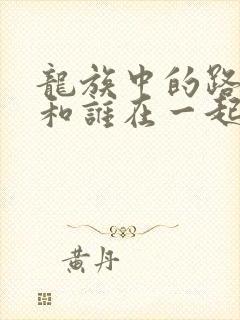 龍族中的路
和誰在一起
黃丹